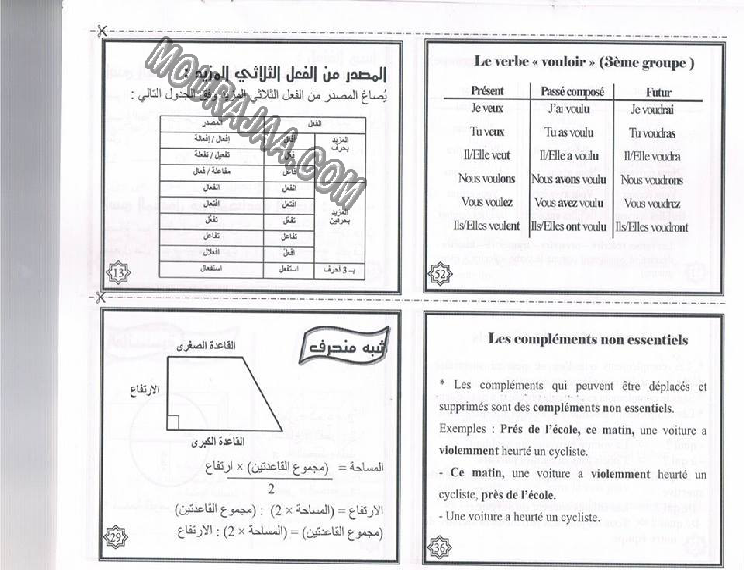 المصدر من الفعل الثلاثي المزيد :
يُصاغ المصدر من الفعل الثلاثي المزيد وفق الجدول التالي :
الفعل المصدر
المزيد بحرف
أفعل إفعال / إفعالة
فعّل تفعيل / تفعلة
فاعل مفاعلة / فعال
المزيد بحرفين
انفعل انفعال
افتعل افتعال
تفعّل تفعّل
تفاعل تفاعل
افعلّ افعلال
بـ 3 أحرف استفعل استفعال
13
MOURAJAA.COM
Le verbe « vouloir » (3ème groupe )
Présent Passé composé Futur
Je veux J'ai voulu Je voudrai
Tu veux Tu as voulu Tu voudras
Il/Elle veut Il/Elle a voulu Il/Elle voudra
Nous voulons Nous avons voulu Nous voudrons
Vous voulez Vous avez voulu Vous voudrez
Ils/Elles veulent Ils/Elles ont voulu Ils/Elles voudront
52
شبه منحرف
القاعدة الصغرى
الارتفاع
القاعدة الكبرى
المساحة = (مجموع القاعدتين) × ارتفاع
2
الارتفاع = (المساحة × 2) : (مجموع القاعدتين)
(مجموع القاعدتين) = (المساحة × 2) : الارتفاع
29
Les compléments non essentiels
* Les compléments qui peuvent être déplacés et
supprimés sont des compléments non essentiels.
Exemples : Prés de l'école, ce matin, une voiture a
violemment heurté un cycliste.
- Ce matin, une voiture a violemment heurté un
cycliste, près de l'école.
- Une voiture a heurté un cycliste.
36